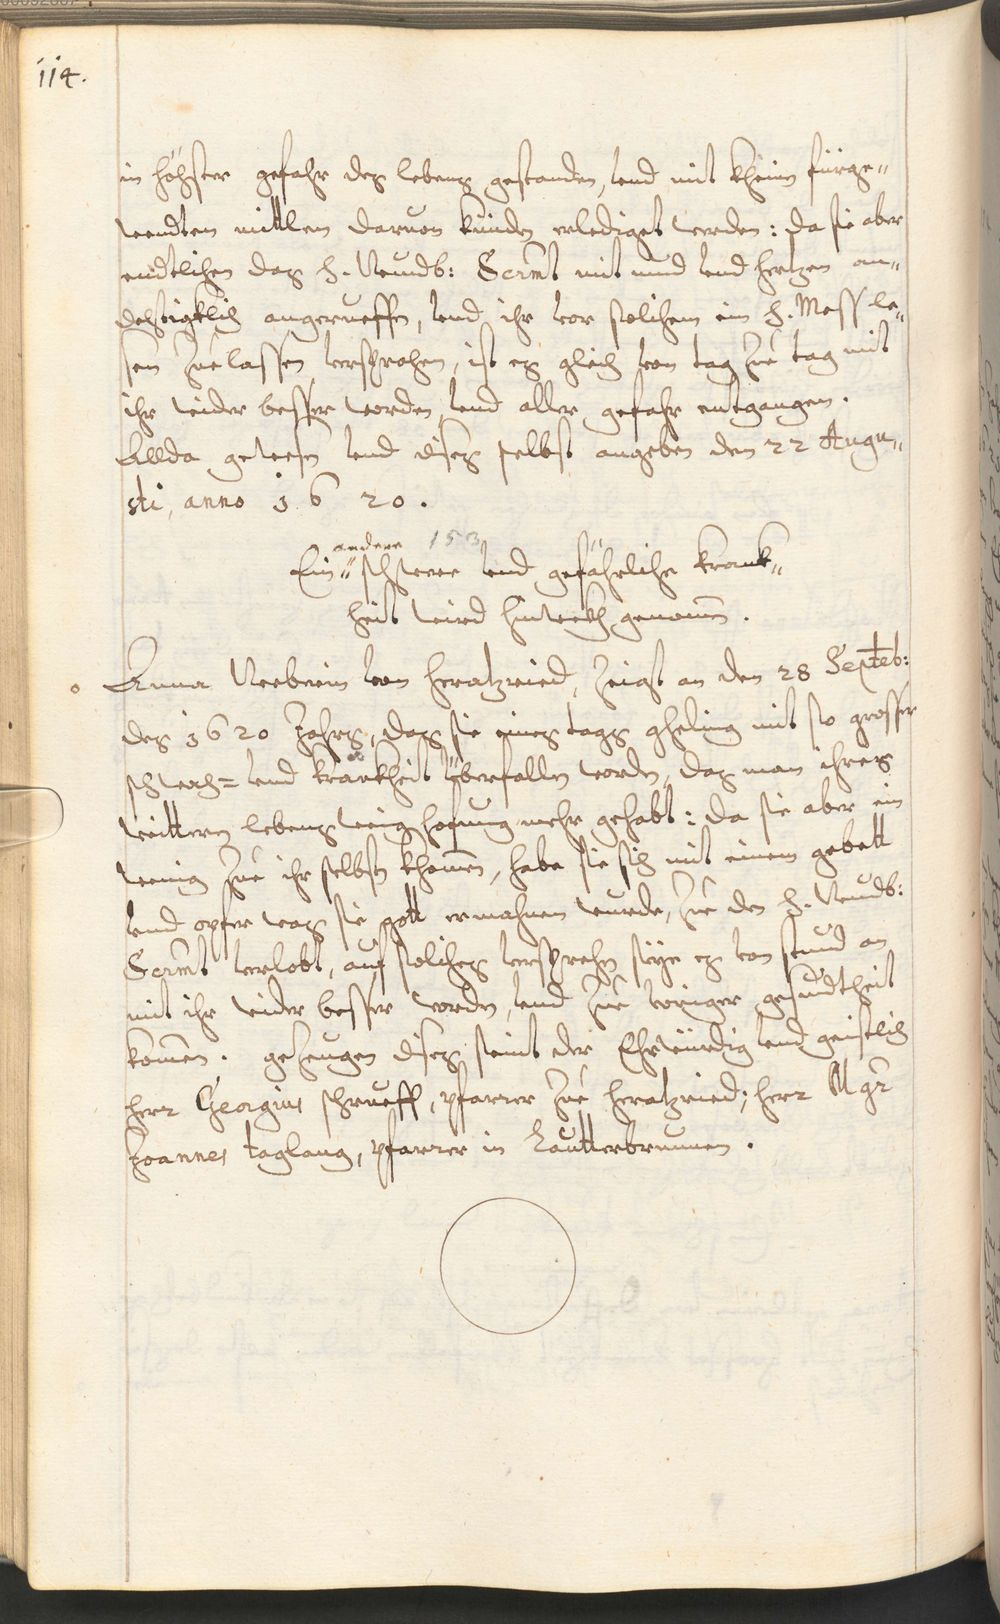 114.
in höhster gefahr des lebens gestanden, vnd mit kheim fürge„
wendten mittlen daruon künden erlediget werden: da sie aber
endtlichen das h. Wundb: Scrmt mit mund vnd hertzen an„
dehtigklich angerueffen, vnd ihr vor solichem ein h. Mess le„
sen zue lassen versprohen, ist es gleich von tag zu tag mit
ihr wider besser worden vnd aller gefahr entgangen.
Allda gewesen vnd dises selbst angeben den 22 Augu„
sti, anno 1620.
andere 153
Ein„ schwere vnd gefährliche krank„
heit wird hinwekh genomen.
Anna von Heratzried, zeigt an den 28 Septeb:
des 1620 Jahrs, das sie eines tags gheling mit so grosser
schwach= vnd krankheit überfallen worden, das man ihres
weittern lebens wenig hofnung mehr gehabt: da sie aber ein
wenig zue ihr selbst khomen, habe sie sich mit einem gebett
vnd opfer was sie gott ermahnen wurde, zue den h. Wundb:
Scrmt verlobt, auf soliches versprehen seye es von stund an
mit ihr wider besser worden, vnd zue voriger gesundtheit
komen. gezeugen dises seint der Ehrwürdig vnd geistlich
herr Georgius schrueff, pfarrer zue heratzried; herr Mgr
Joannes taglang, pfarrer in Lautterbrunnen.